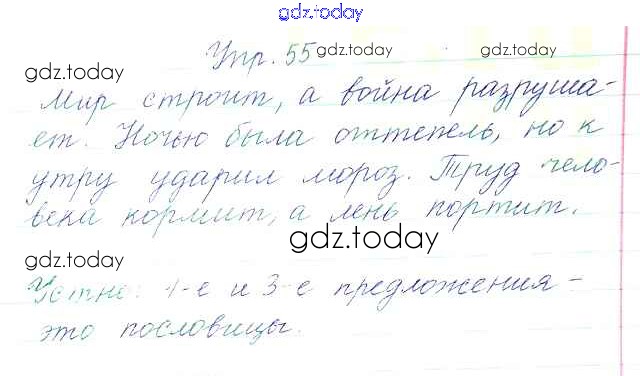 gdz.today
Упр. 55 gdz.today gdz.today
gdz.today
Мир строит, а война разруша-
ет. Ночью была оттепель, но к
утру ударил мороз. Труд чело-
века кормит, а лень портит.
gdz.today
gdz.today
Устно: 1-е и 3-е предложения -
это пословицы.